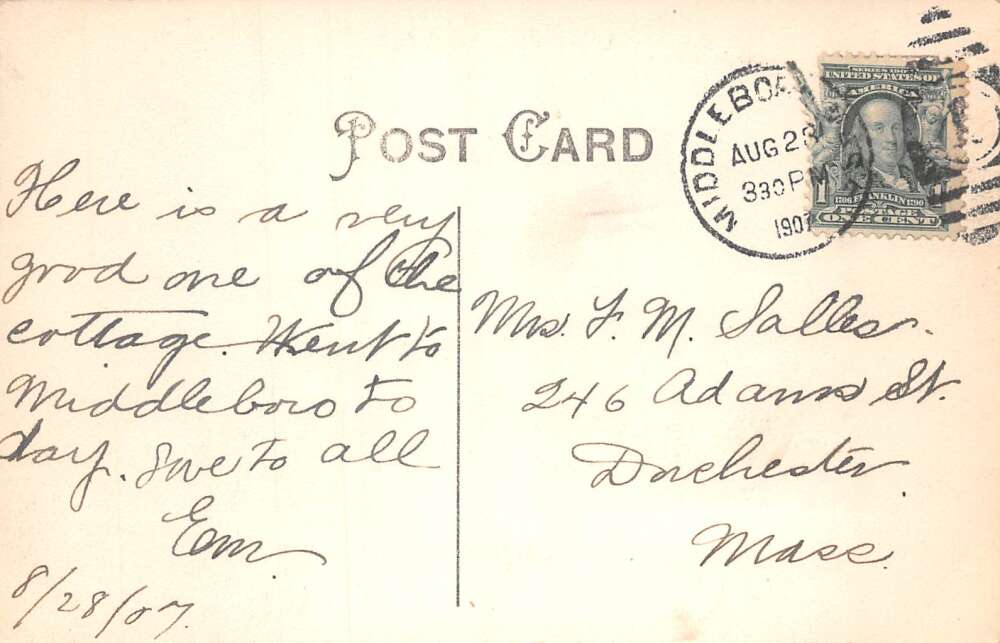 POST CARD
MIDDLEBORO
AUG 28
330 PM
1907
SERIES 1902
UNITED STATES OF
AMERICA
1706 FRANKLIN 1790
POSTAGE
ONE CENT
Here is a very
good one of the
cottage. Went to
Middleboro to
day. Love to all
Em.
8/28/07.
Mrs. F. M. Salles.
246 Adams St.
Dorchester.
Mass.